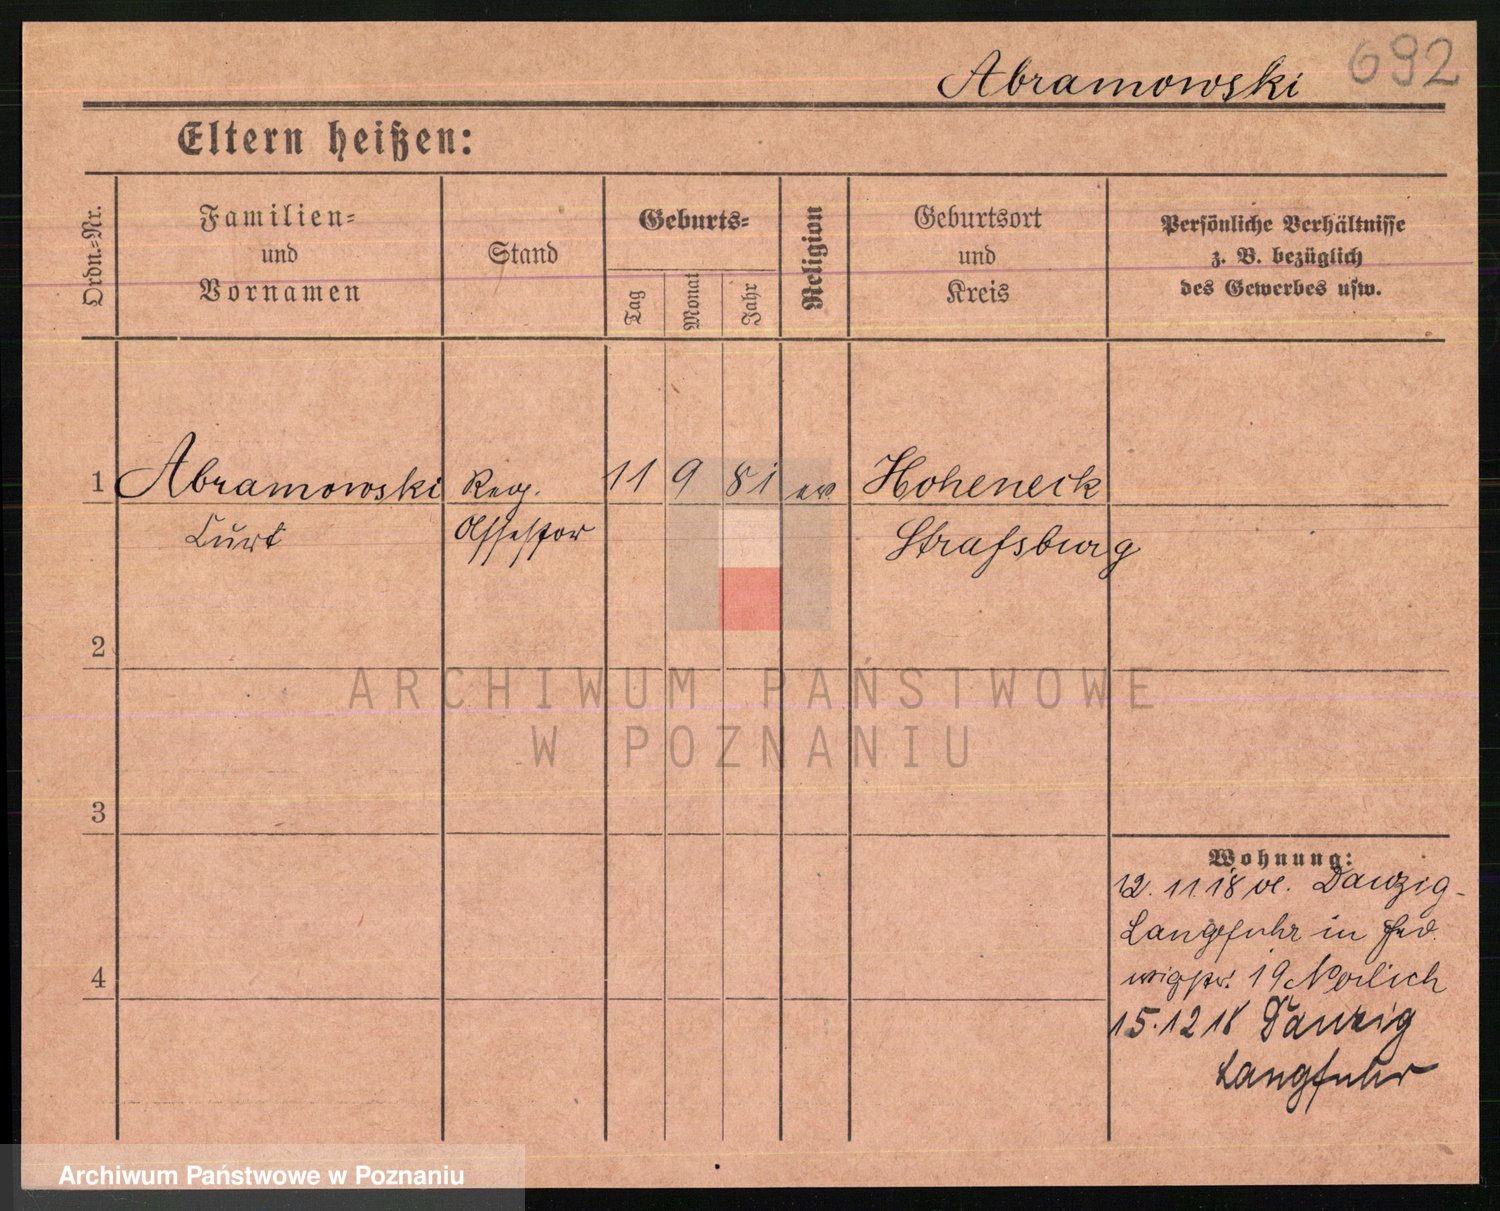 Abramowski 692
Eltern heißen:
Ordn.=Nr.
Familien=
und
Vornamen
Stand
Geburts=
Tag
Monat
Jahr
Religion
Geburtsort
und
Kreis
Persönliche Verhältnisse
z. B. bezüglich
des Gewerbes usw.
1 Abramowski Reg. 11 9 81 ev. Hoheneck
Curt Assessor Strafsburg
2
3
4
Wohnung:
12. 11. 18 Danzig-
Langfuhr in
19
15. 12 18 Danzig
Langfuhr
ARCHIWUM PAŃSTWOWE
W POZNANIU
Archiwum Państwowe w Poznaniu